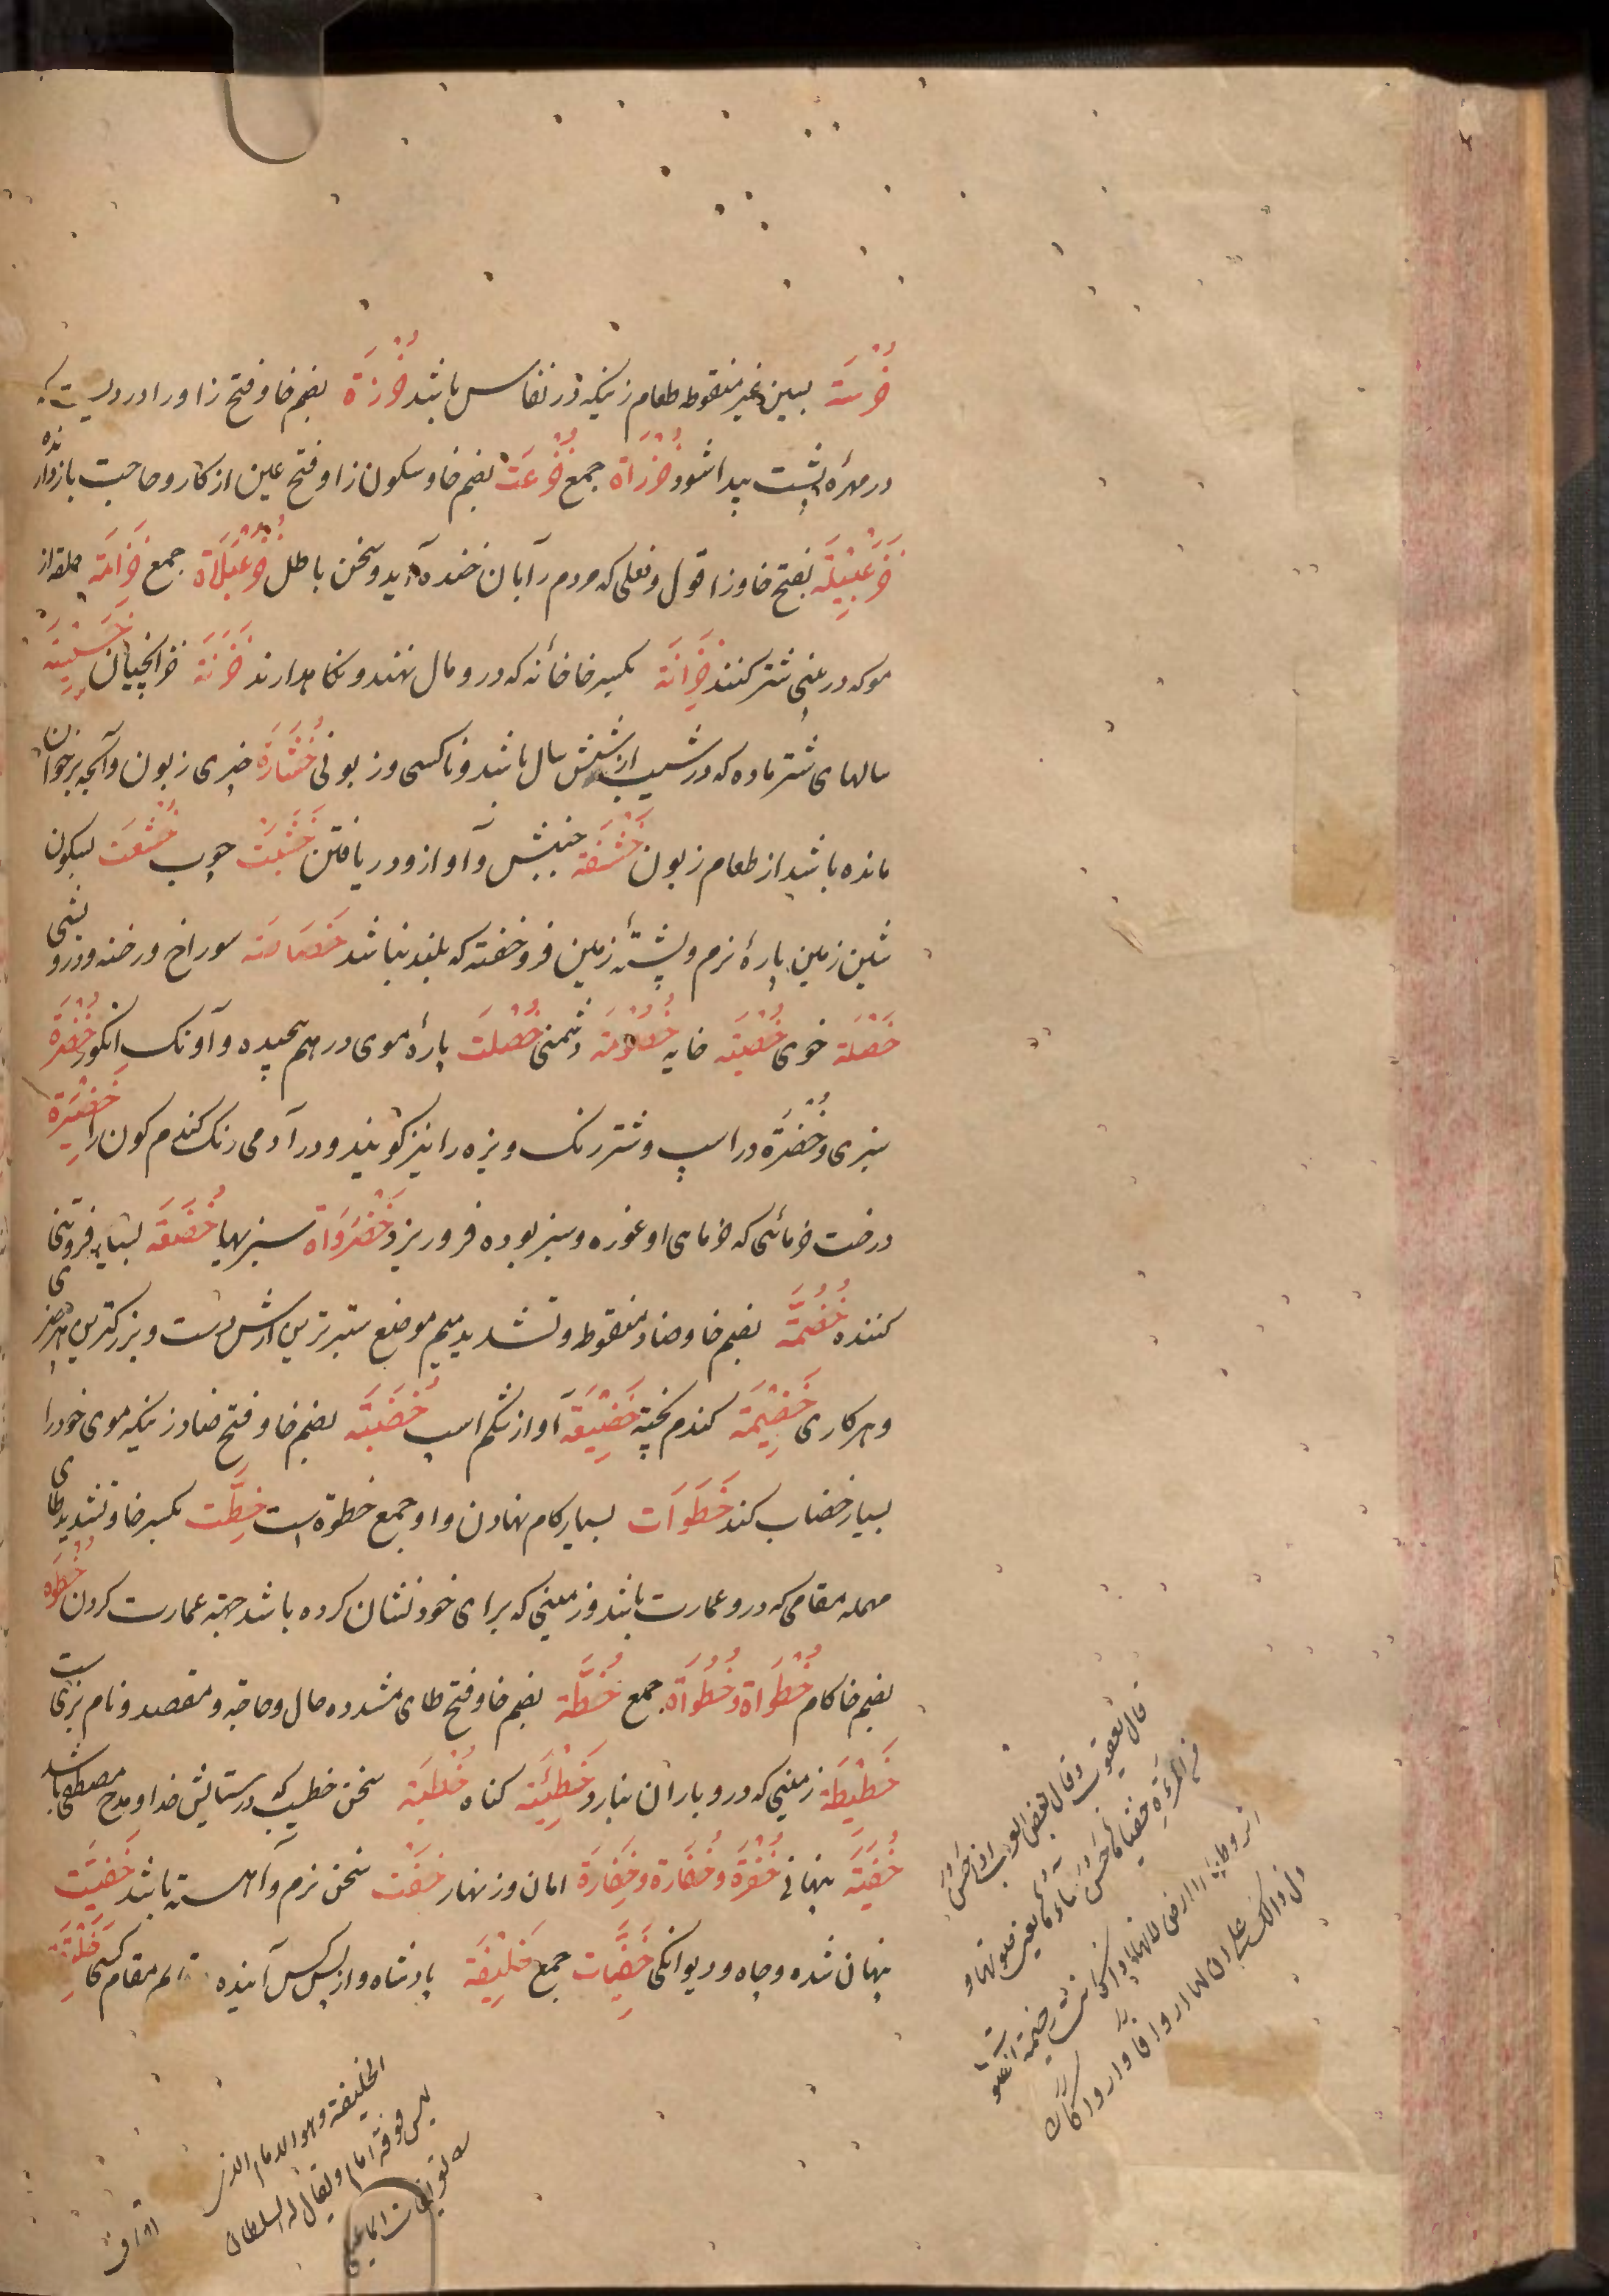 خُرْسَة بسین غیر منقوطه طعام زنیکه در نفاس باشد خُزَرَة بضم خا و فتح زا و را دردیست که
در مهرهٔ پشت پیدا شود خُزَرَاة جمع خُزْعَت بضم خا و سکون زا و فتح عین از کار و صاحبت بازدارنده
خَزَعْبِیْلَة بفتح خا و زا قول و فعلی که مردم را بان خنده آید و سخن باطل خُزَعْبَلَاة جمع خِزَامَة حلقه از
مو که در بینی شتر کنند خِزَانَة بکسر خا خانه که در و مال نهند و نکاهدارند خَزَنَة خزانچیان
سالهای شتر ماده که در شیب از شش سال باشد و ناکسی و زبونی خُشَارَة چیزی زبون و آنچه بر خوان
مانده باشد از طعام زبون خَشْفَة جنبش و آواز و دریافتن خَشَبَت چوب خُشْعَت بسکون
شین زمین پارهٔ نرم و پشتهٔ زمین فروخفته که بلند نباشد خَصَاصَة سوراخ و رخنه و درویشی
خَصْلَة خوی خُصْیَة خایه خُصُوْمَة دشمنی خُصْلَت پارهٔ موی در هم پیچیده و آونک انکور خُضْرَة
سبزی و خُضْرَة در اسپ و شتر رنک ویزه را نیز کویند و در آدمی رنک کندم کون را خَضِیْرَة
درخت خرمائی که خرمای او غوره و سبز بوده فرو ریزد خَضْرَوَاة سبزیها خُضَعَة بسیار فروتنی
کننده خُضُمَّة بضم خا و ضاد منقوطه و تشدید میم موضع ستبرترین ارش دست و بزرکترین هر چیزی
و هر کاری خَضِیْمَة کندم پخته خَضِیْعَة آواز شکم اسپ خُضَبَة بضم خا و فتح ضاد زنیکه موی خود را
بسیار خضاب کند خَطَوَات بسیار کام نهادن و او جمع خطوة است خِطَّت بکسر خا و تشدید طای
مهمله مقامی که در و عمارت باشد و زمینی که برای خود نشان کرده باشد جهة عمارت کردن خُطْوَه
بضم خا کام خُطْوَاة و خُطُوَاة جمع خُطَّة بضم خا و فتح طای مشدده حال و حاجة و مقصد و نام بزی است
خَطِیْطَة زمینی که در و باران نبارد خَطِیْئَة کناه خُطْبَة سخن خطیب که در ستایش خدا و مدح مصطفی باشد
خُفْیَة پنهانی خُفْرَة و خُفَارَة و خِفَارَة امان و زنهار خَفْت سخن نرم و آهسته باشد خَفِیَّت
پنهان شده و چاه و دیوانکی خَفِیَّات جمع خَلِیْفَة پادشاه و از پس کس آینده
قال یعقوب وقال بعض العرب
الخلیفة وهو الامام الذی
لیس فوقه امام ویقال له السلطان